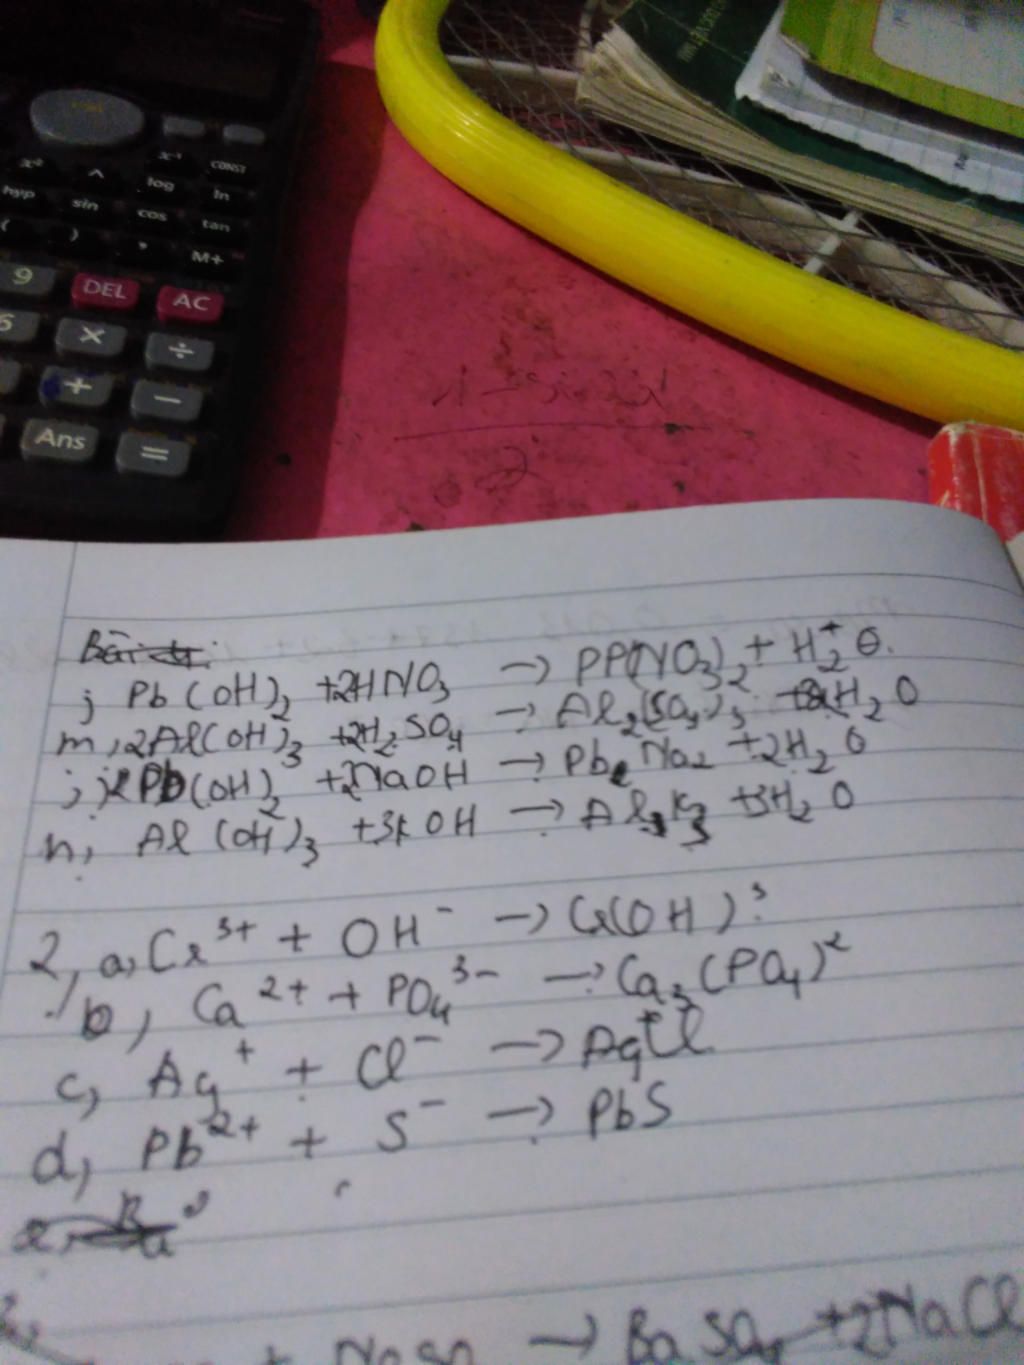 x² ^ x⁻¹ CONST
hyp sin log ln
( ) cos tan
, M+
9 DEL AC
6 × ÷
+ −
Ans =
2
j Pb(OH)₂ +2HNO₃ → PP(NO₃)₂ + H₂⁺O.
m, 2Al(OH)₃ +2H₂SO₄ → Al₂(SO₄)₃ H₂O
Pb(OH)₂ +2NaOH → Pb Na₂ +2H₂O
n, Al(OH)₃ +3KOH → Al K₃ +3H₂O
2, a, Cr³⁺ + OH⁻ → Cr(OH)³
b, Ca²⁺ + PO₄³⁻ → Ca₃(PO₄)²
c, Ag⁺ + Cl⁻ → Ag⁺Cl
d, Pb²⁺ + S⁻ → PbS
→ BaSO₄ +2NaCl